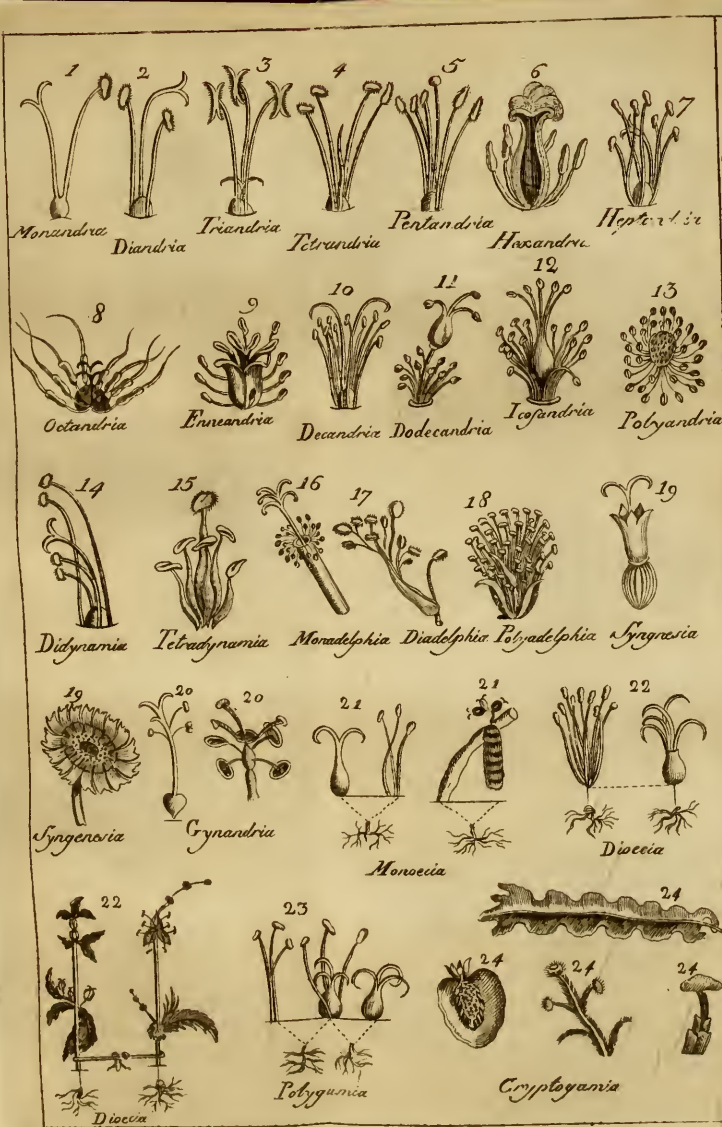 1 2 3 4 5 6 7
Monandria Diandria Triandria Tetrandria Pentandria Hexandria Heptandria
8 9 10 11 12 13
Octandria Enneandria Decandria Dodecandria Icosandria Polyandria
14 15 16 17 18 19
Didynamia Tetradynamia Monadelphia Diadelphia Polyadelphia Syngnesia
19 20 20 21 21 22
Syngenesia Gynandria Monoecia Dioecia
22 23 24 24 24 24
Dioecia Polygamia Cryptogamia